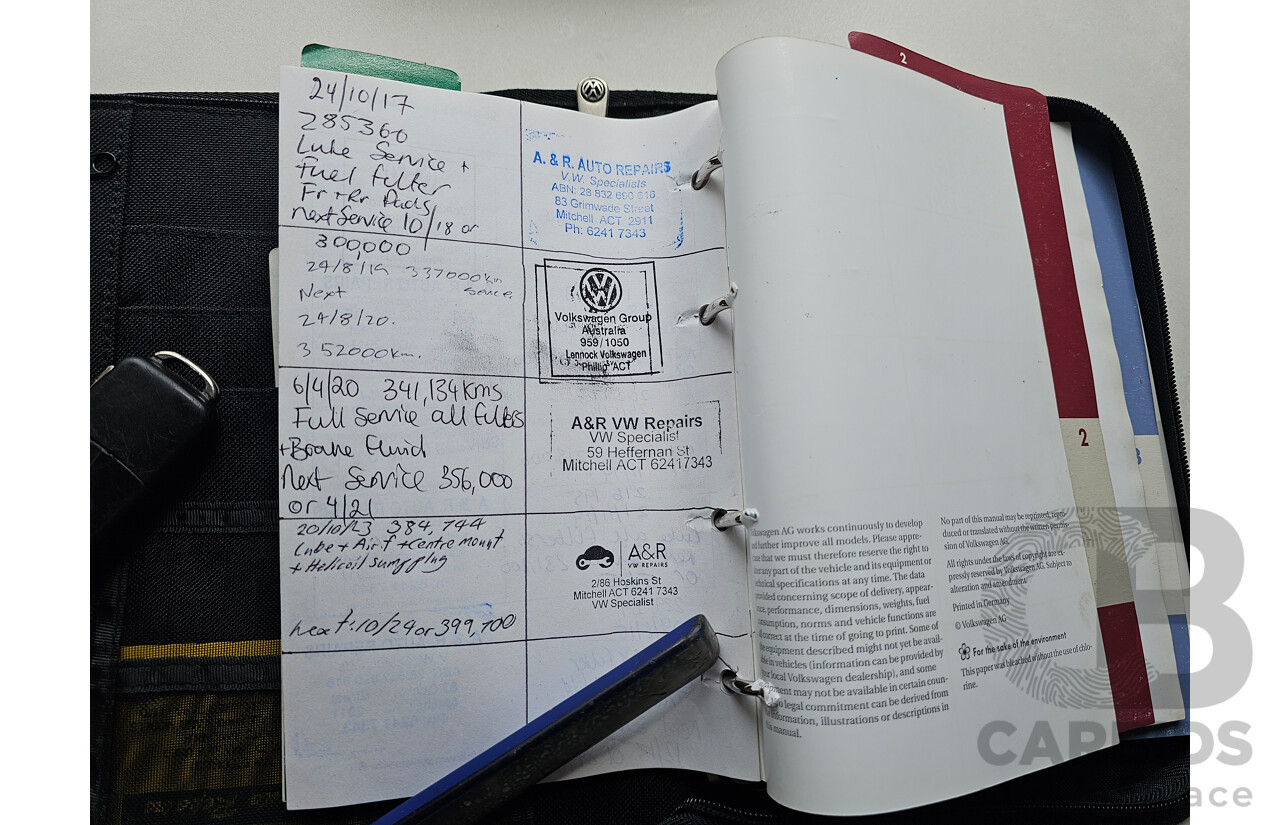 24/10/17
285360
Lube Service +
Fuel Filter
Fr + Rr Pads
next Service 10/18 or
300,000
A. & R. AUTO REPAIRS
V.W. Specialists
ABN: 28 832 690 616
83 Grimwade Street
Mitchell ACT 2911
Ph: 6241 7343
24/8/19 337000km
Next Service
24/8/20.
352000km.
Volkswagen Group
Australia
959/1050
Lennock Volkswagen
Phillip ACT
6/4/20 341,134 Kms
Full Service all Filters
+ Brake Fluid
Next Service 356,000
or 4/21
A&R VW Repairs
VW Specialist
59 Heffernan St
Mitchell ACT 62417343
20/10/23 384,744
Lube + Air f + Centre mount
+ Helicoil sump plug
next: 10/24 or 399,700
A&R
VW REPAIRS
2/86 Hoskins St
Mitchell ACT 6241 7343
VW Specialist
2
2
3
lkswagen AG works continuously to develop
nd further improve all models. Please appre-
ciate that we must therefore reserve the right to
ter any part of the vehicle and its equipment or
chnical specifications at any time. The data
ovided concerning scope of delivery, appear-
ce, performance, dimensions, weights, fuel
nsumption, norms and vehicle functions are
correct at the time of going to print. Some of
he equipment described might not yet be avail-
ble in vehicles (information can be provided by
our local Volkswagen dealership), and some
ment may not be available in certain coun-
o legal commitment can be derived from
information, illustrations or descriptions in
this manual.
No part of this manual may be reprinted, repro-
duced or translated without the written permis-
sion of Volkswagen AG.
All rights under the laws of copyright are ex-
pressly reserved by Volkswagen AG. Subject to
alteration and amendment.
Printed in Germany
© Volkswagen AG
For the sake of the environment
This paper was bleached without the use of chlo-
rine.
CB
ace